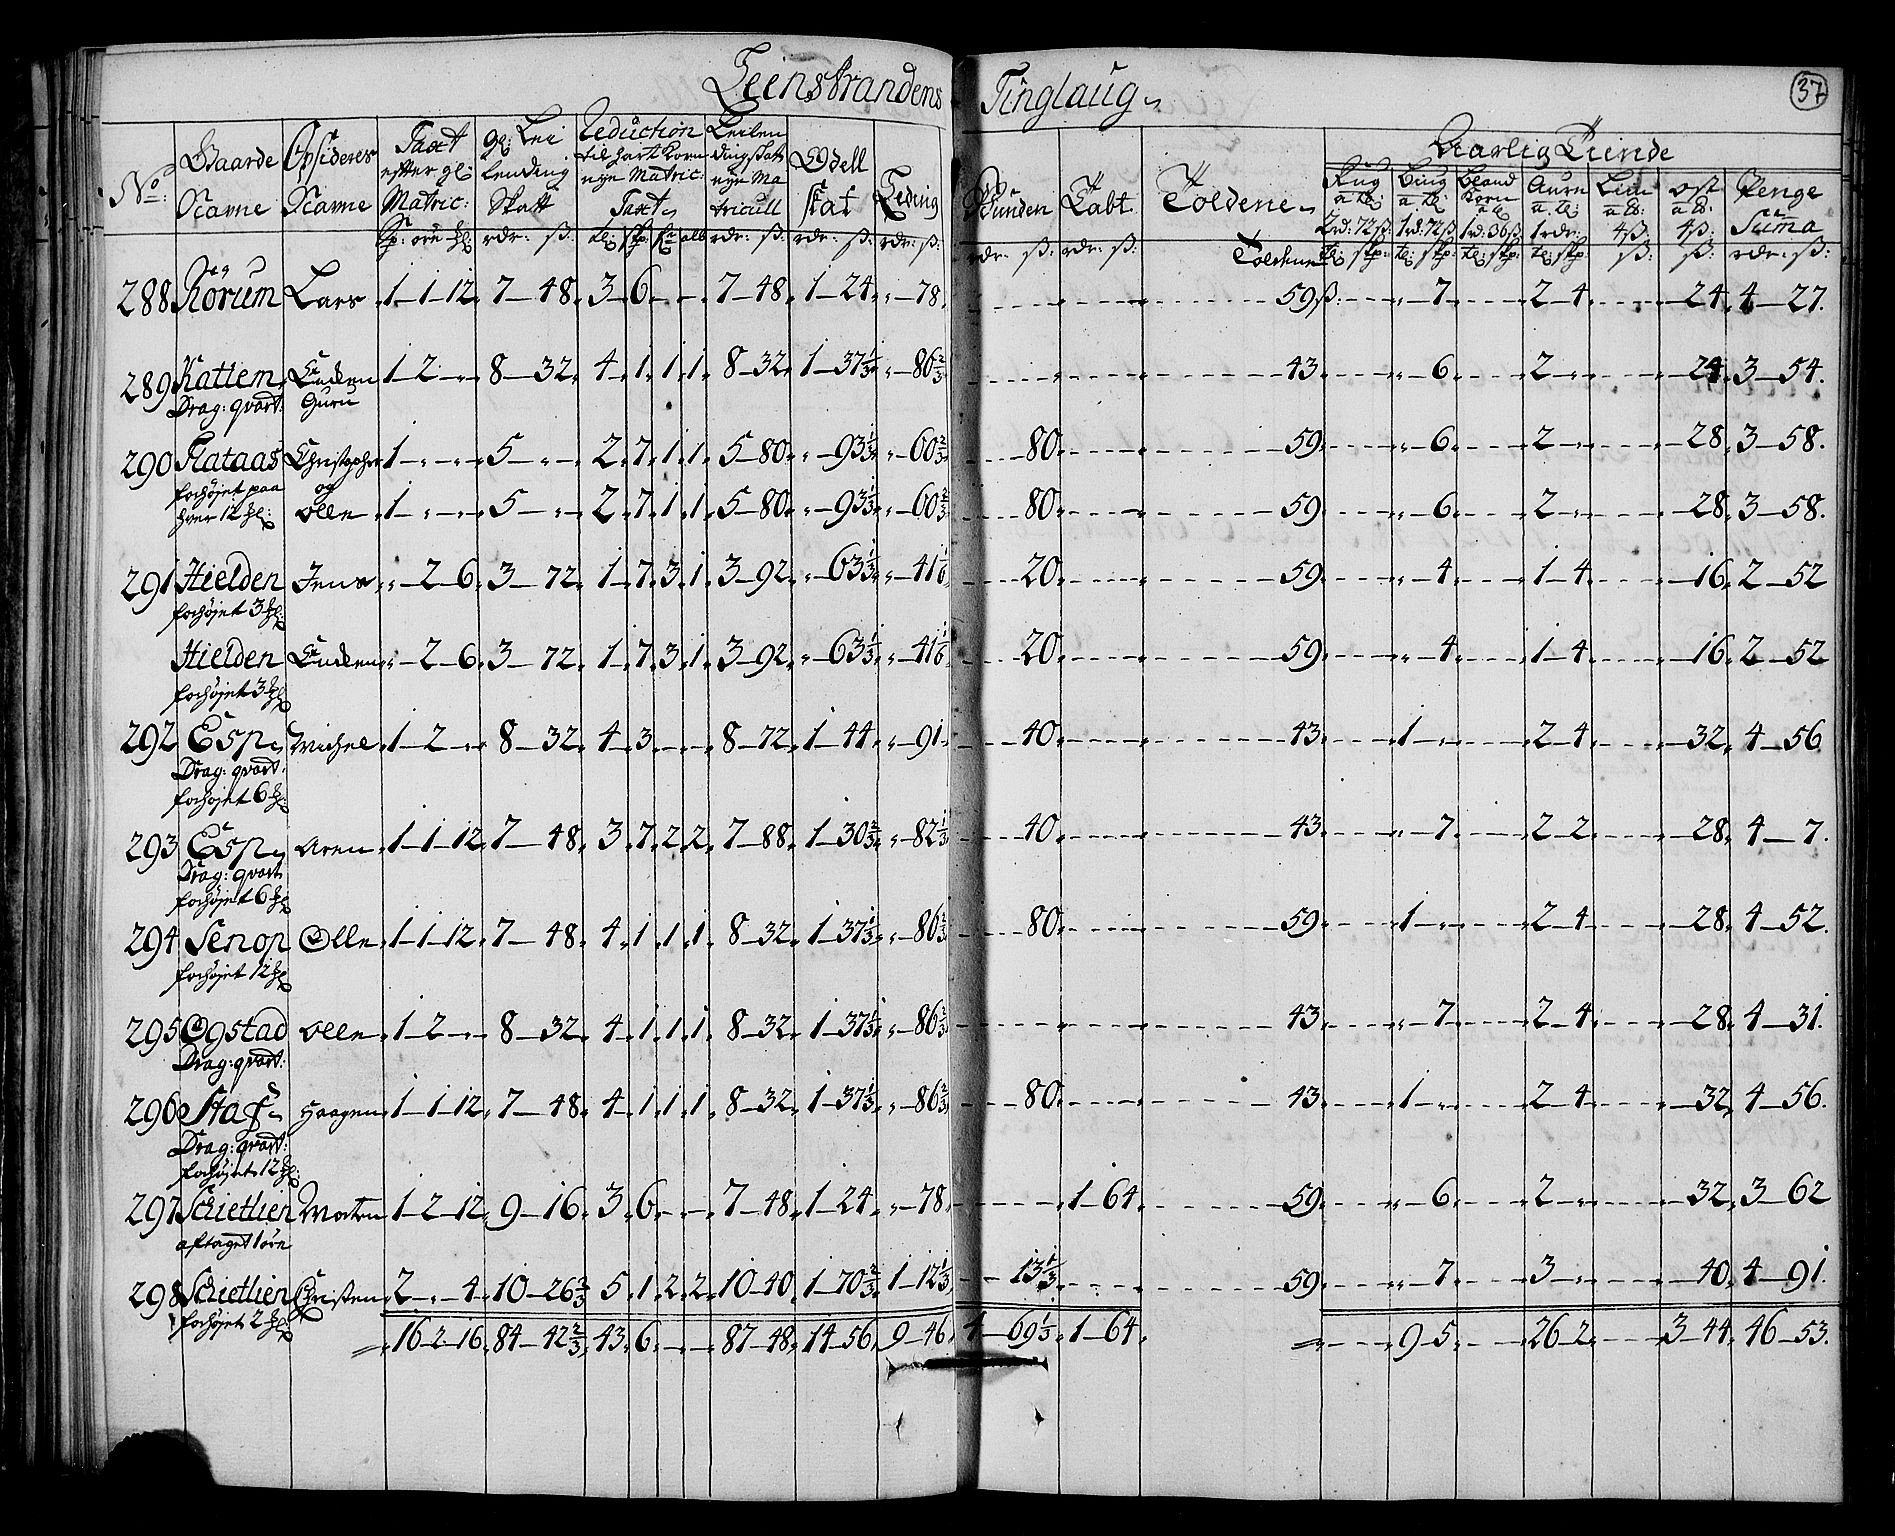 Leenstrandens Tinglaug
37
No: Gaarde Navne Opsidernes Navne Taxt effter gl: Matric: gl: Lei lending Skatt Reduction til hart Korn nye Matric: Taxt Leilendingskatt nye Matricull Odell skat Leding Bunden Tabt Toldene Aarlig Tiende
Rug a tl: 2rd: 72ß Biug a tl: 1rd: 72ß Bland Korn a tl: 1rd: 36ß Aure a tl: 1rdr: Lin a lb: 4ß: ost a lb: 4ß: Penge Suma
Sp: øre Hl: rdr: ß: tl: skp: fr: alb rdr: ß: rdr: ß: rdr: ß: rdr: ß: rdr: ß: Toldene tl: skp: tl: skp: tl: skp: tl: skp: ß: ß: rdr: ß:
288 Rörum Lars 1-1-12 7-48 3 6 7-48 1-24 „-78 59ß: „-7 2-4 24 4-27
289 Kattem Enchen 1-2-„ 8-32 4 1 1 1 8-32 1-37 1/3 „-86 2/3 43 „-6 2-„ 24 3-54
Drag: qvart: Guru
290 Flataas Christopher 1-„-„ 5-„ 2 7 1 1 5-80 „-93 1/3 „-60 2/3 80 59 „-6 2-„ 28 3-58
forhöjet paa og
hver 12 Hl: olle 1-„-„ 5-„ 2 7 1 1 5-80 „-93 1/3 „-60 2/3 80 59 „-6 2-„ 28 3-58
291 Hielden Jens „-2-6 3-72 1 7 3 1 3-92 „-63 1/3 „-41 1/6 20 59 „-4 1-4 16 2-52
forhöjet 3 Hl:
Hielden Enchen „-2-6 3-72 1 7 3 1 3-92 „-63 1/3 „-41 1/6 20 59 „-4 1-4 16 2-52
forhöjet 3 Hl
292 Esp Michel 1-2-„ 8-32 4 3 8-72 1-44 „-91 40 43 1-„ 2-4 32 4-56
Drag: qvart:
forhöjet 6 Hl:
293 Esp Aren 1-1-12 7-48 3 7 2 2 7-88 1-30 2/3 „-82 1/3 40 43 „-7 2-2 28 4-7
Drag: qvart
forhöjet 6 Hl
294 Senop Olle 1-1-12 7-48 4 1 1 1 8-32 1-37 1/3 „-86 2/3 80 59 1-„ 2-4 28 4-52
forhöjet 12 Hl
295 Ogstad olle 1-2-„ 8-32 4 1 1 1 8-32 1-37 1/3 „-86 2/3 43 „-7 2-4 28 4-31
Drag: qvart:
296 Staf Haagen 1-1-12 7-48 4 1 1 1 8-32 1-37 1/3 „-86 2/3 80 43 1-„ 2-4 32 4-56
Drag: qvart:
forhöjet 12 Hl:
297 Schietlien Morten 1-2-12 9-16 3 6 7-48 1-24 „-78 1-64 59 „-6 2-„ 32 3-62
aftaget 1 øre
298 Schietlien Christen 2-„-4 10-26 2/3 5 1 2 2 10-40 1-70 2/3 1-12 1/3 13 1/3 59 „-7 3-„ 40 4-91
forhöjet 2 Hl:
16-2-16 84-42 2/3 43 6 87-48 14-56 9-46 4-69 1/3 1-64 9-5 26-2 3-44 46-53